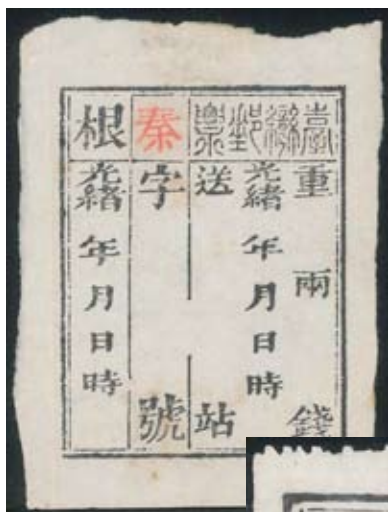 臺灣郵票
重兩錢
光緒年月日時
送站
秦字號
根
光緒年月日時